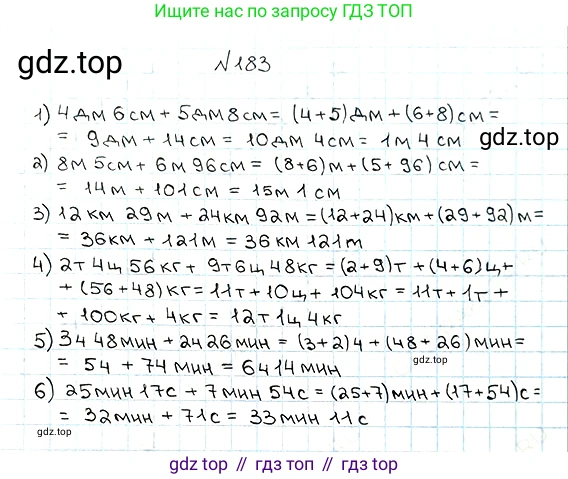 Ищите нас по запросу ГДЗ ТОП
gdz.top
№183
1) 4 дм 6 см + 5 дм 8 см = (4+5) дм + (6+8) см =
= 9 дм + 14 см = 10 дм 4 см = 1 м 4 см
2) 8 м 5 см + 6 м 96 см = (8+6) м + (5 + 96) см =
= 14 м + 101 см = 15 м 1 см
3) 12 км 29 м + 24 км 92 м = (12+24) км + (29+92) м =
= 36 км + 121 м = 36 км 121 m
4) 2 т 4 ц 56 кг + 9 т 6 ц 48 кг = (2+9) т + (4+6) ц +
+ (56+48) кг = 11 т + 10 ц + 104 кг = 11 т + 1 т +
+ 100 кг + 4 кг = 12 т 1 ц 4 кг
5) 3 ч 48 мин + 2 ч 26 мин = (3+2) ч + (48+26) мин =
= 5 ч + 74 мин = 6 ч 14 мин
6) 25 мин 17 с + 7 мин 54 с = (25+7) мин + (17+54) с =
= 32 мин + 71 с = 33 мин 11 с
gdz.top
gdz.top
gdz.top // гдз топ // гдз.top